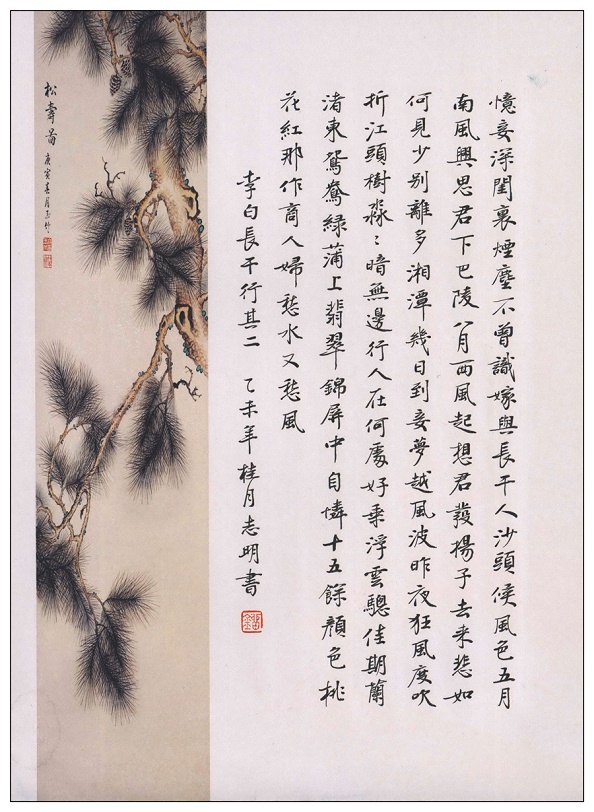 憶妾深閨裏煙塵不曾識嫁與長干人沙頭候風色五月
南風興思君下巴陵八月西風起想君發揚子去來悲如
何見少別離多湘潭幾日到妾夢越風波昨夜狂風度吹
折江頭樹淼〻暗無邊行人在何處好乘浮雲驄佳期蘭
渚東鴛鴦綠蒲上翡翠錦屏中自憐十五餘顏色桃
花紅那作商人婦愁水又愁風
李白長干行其二 乙未年桂月志明書
松壽啚
庚寅春月